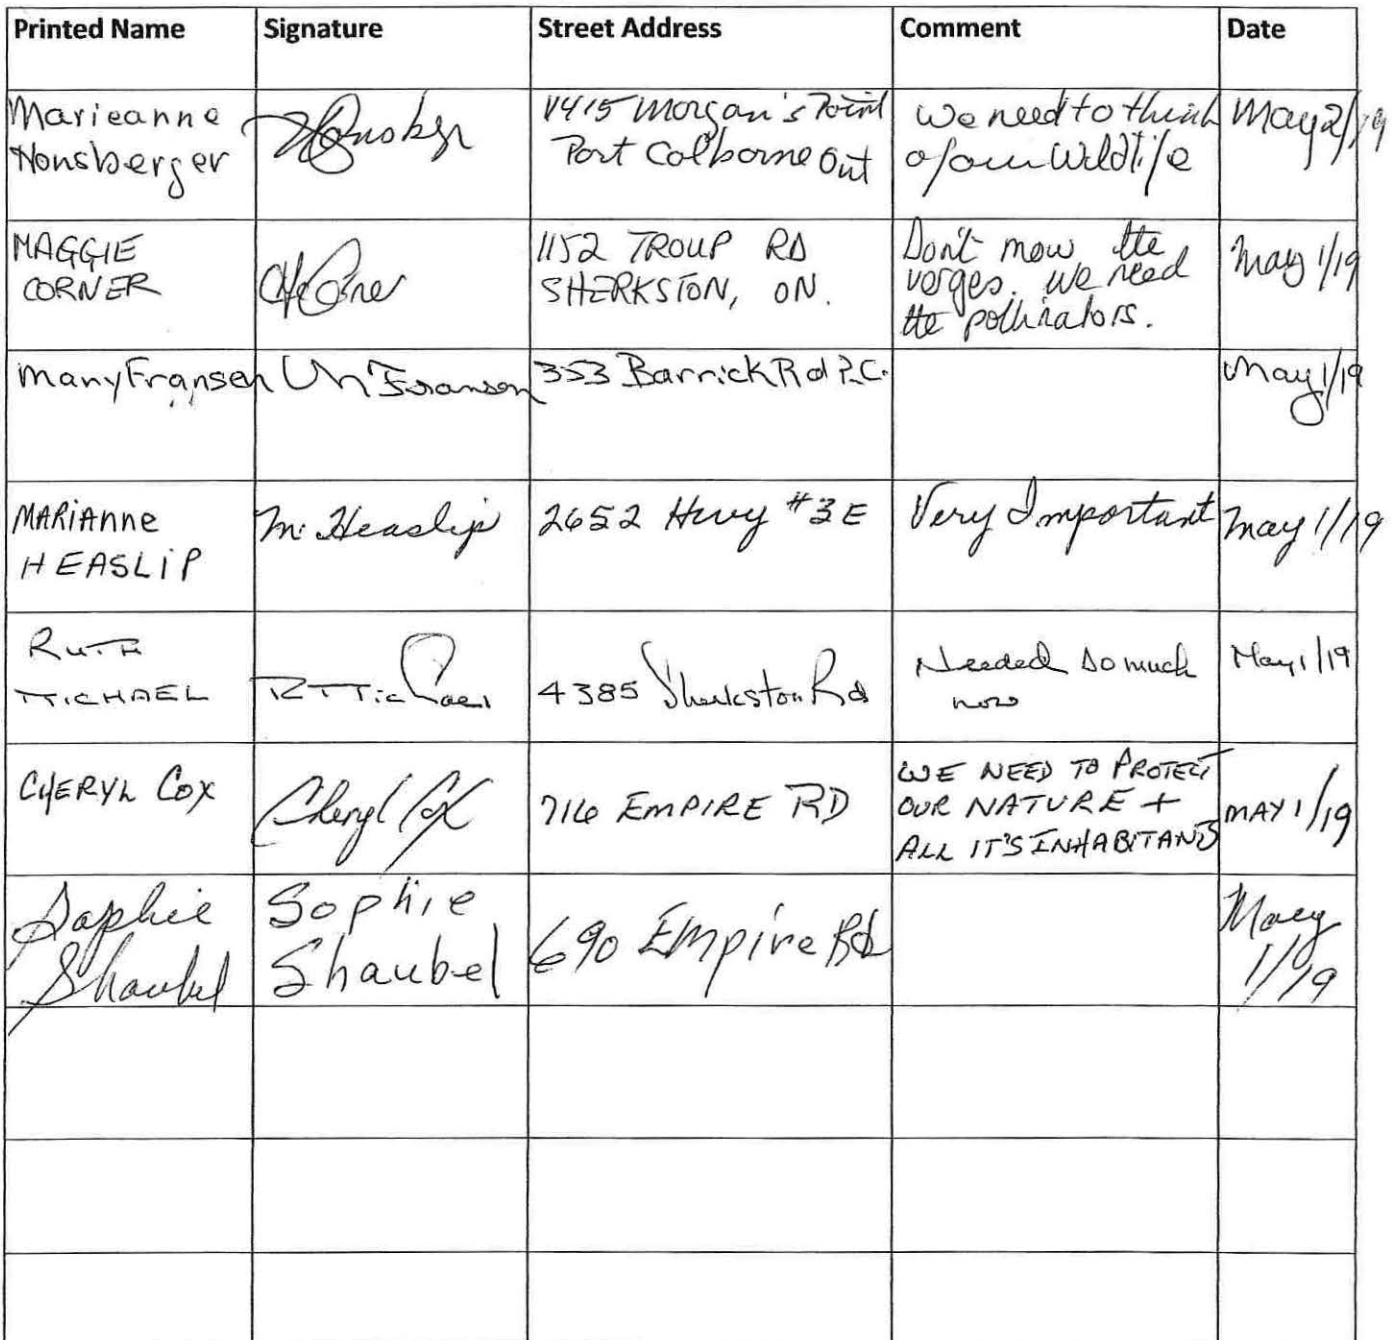 Printed Name Signature Street Address Comment Date
Marieanne
Honsberger
Morgan's Point
Port Colborne Ont
We need to think
of our Wildlife
May 2/19
MAGGIE
CORNER
1152 TROUP RD
SHERKSTON, ON.
Don't mow the
verges. We need
the pollinators.
May 1/19
Mary Fransen
353 Barrick Rd P.C.
May 1/19
MARIANNE
HEASLIP
M. Heaslip
2652 Hwy #3 E
Very Important
May 1/19
RUTH
MICHAEL
R Michael
4385 Sherkston Rd
Needed so much
now
May 1/19
CHERYL COX
Cheryl Cox
716 EMPIRE RD
WE NEED TO PROTECT
OUR NATURE +
ALL IT'S INHABITANTS
MAY 1/19
Sophie
Shaubel
Sophie
Shaubel
690 Empire Rd
May
1/19